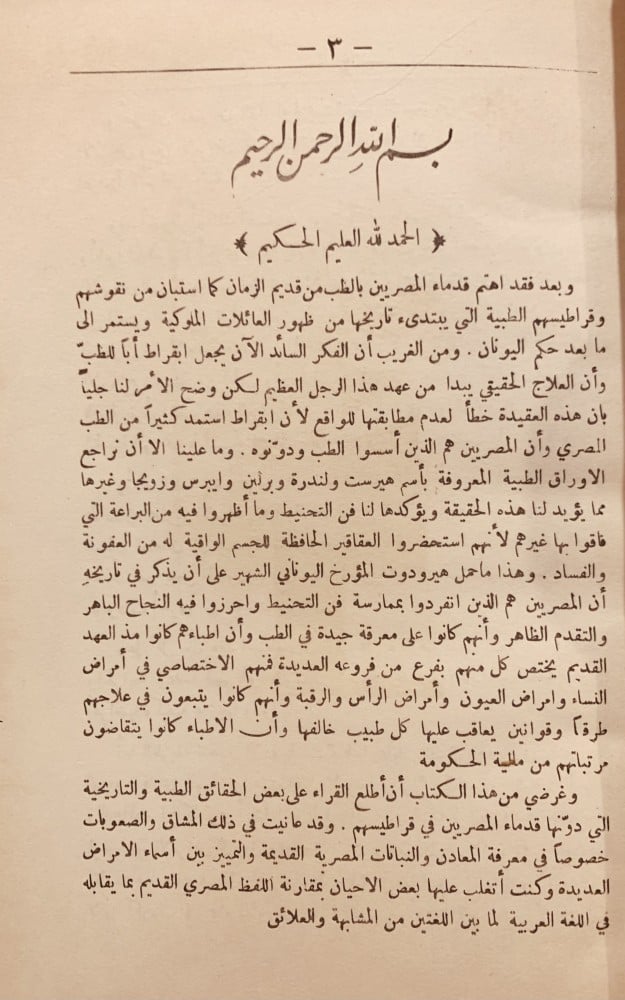 — ٣ —
بسم الله الرحمن الرحيم
﴿ الحمد لله العليم الحكيم ﴾
وبعد فقد اهتم قدماء المصريين بالطب من قديم الزمان كما استبان من نقوشهم
وقراطيسهم الطبية التي يبتدىء تاريخها من ظهور العائلات الملوكية ويستمر الى
ما بعد حكم اليونان . ومن الغريب أن الفكر السائد الآن يجعل ابقراط أباً للطبّ
وأن العلاج الحقيقي يبدا من عهد هذا الرجل العظيم لكن وضح الأمر لنا جلياً
بان هذه العقيدة خطأ لعدم مطابقتها للواقع لأن ابقراط استمد كثيراً من الطب
المصري وأن المصريين هم الذين أسسوا الطب ودوّنوه . وما علينا الا أن نراجع
الاوراق الطبية المعروفة بأسم هيرست ولندرة وبرلين وايبرس وزويجا وغيرها
مما يؤيد لنا هذه الحقيقة ويؤكدها لنا فن التحنيط وما أظهروا فيه من البراعة التي
فاقوا بها غيرهم لأنهم استحضروا العقاقير الحافظة للجسم الواقية له من العفونة
والفساد . وهذا ما حمل هيرودوت المؤرخ اليوناني الشهير على أن يذكر في تاريخه
أن المصريين هم الذين انفردوا بممارسة فن التحنيط واحرزوا فيه النجاح الباهر
والتقدم الظاهر وأنهم كانوا على معرفة جيدة في الطب وأن اطباءهم كانوا مذ العهد
القديم يختص كل منهم بفرع من فروعه العديدة فمنهم الاختصاصي في أمراض
النساء وامراض العيون وأمراض الرأس والرقبة وأنهم كانوا يتبعون في علاجهم
طرقاً وقوانين يعاقب عليها كل طبيب خالفها وأن الاطباء كانوا يتقاضون
مرتباتهم من مالية الحكومة
وغرضي من هذا الكتاب أن أطلع القراء على بعض الحقائق الطبية والتاريخية
التي دوّنها قدماء المصريين في قراطيسهم . وقد عانيت في ذلك المشاق والصعوبات
خصوصاً في معرفة المعادن والنباتات المصرية القديمة والتمييز بين أسماء الامراض
العديدة وكنت أتغلب عليها بعض الاحيان بمقارنة اللفظ المصري القديم بما يقابله
في اللغة العربية لما بين اللغتين من المشابهة والعلائق